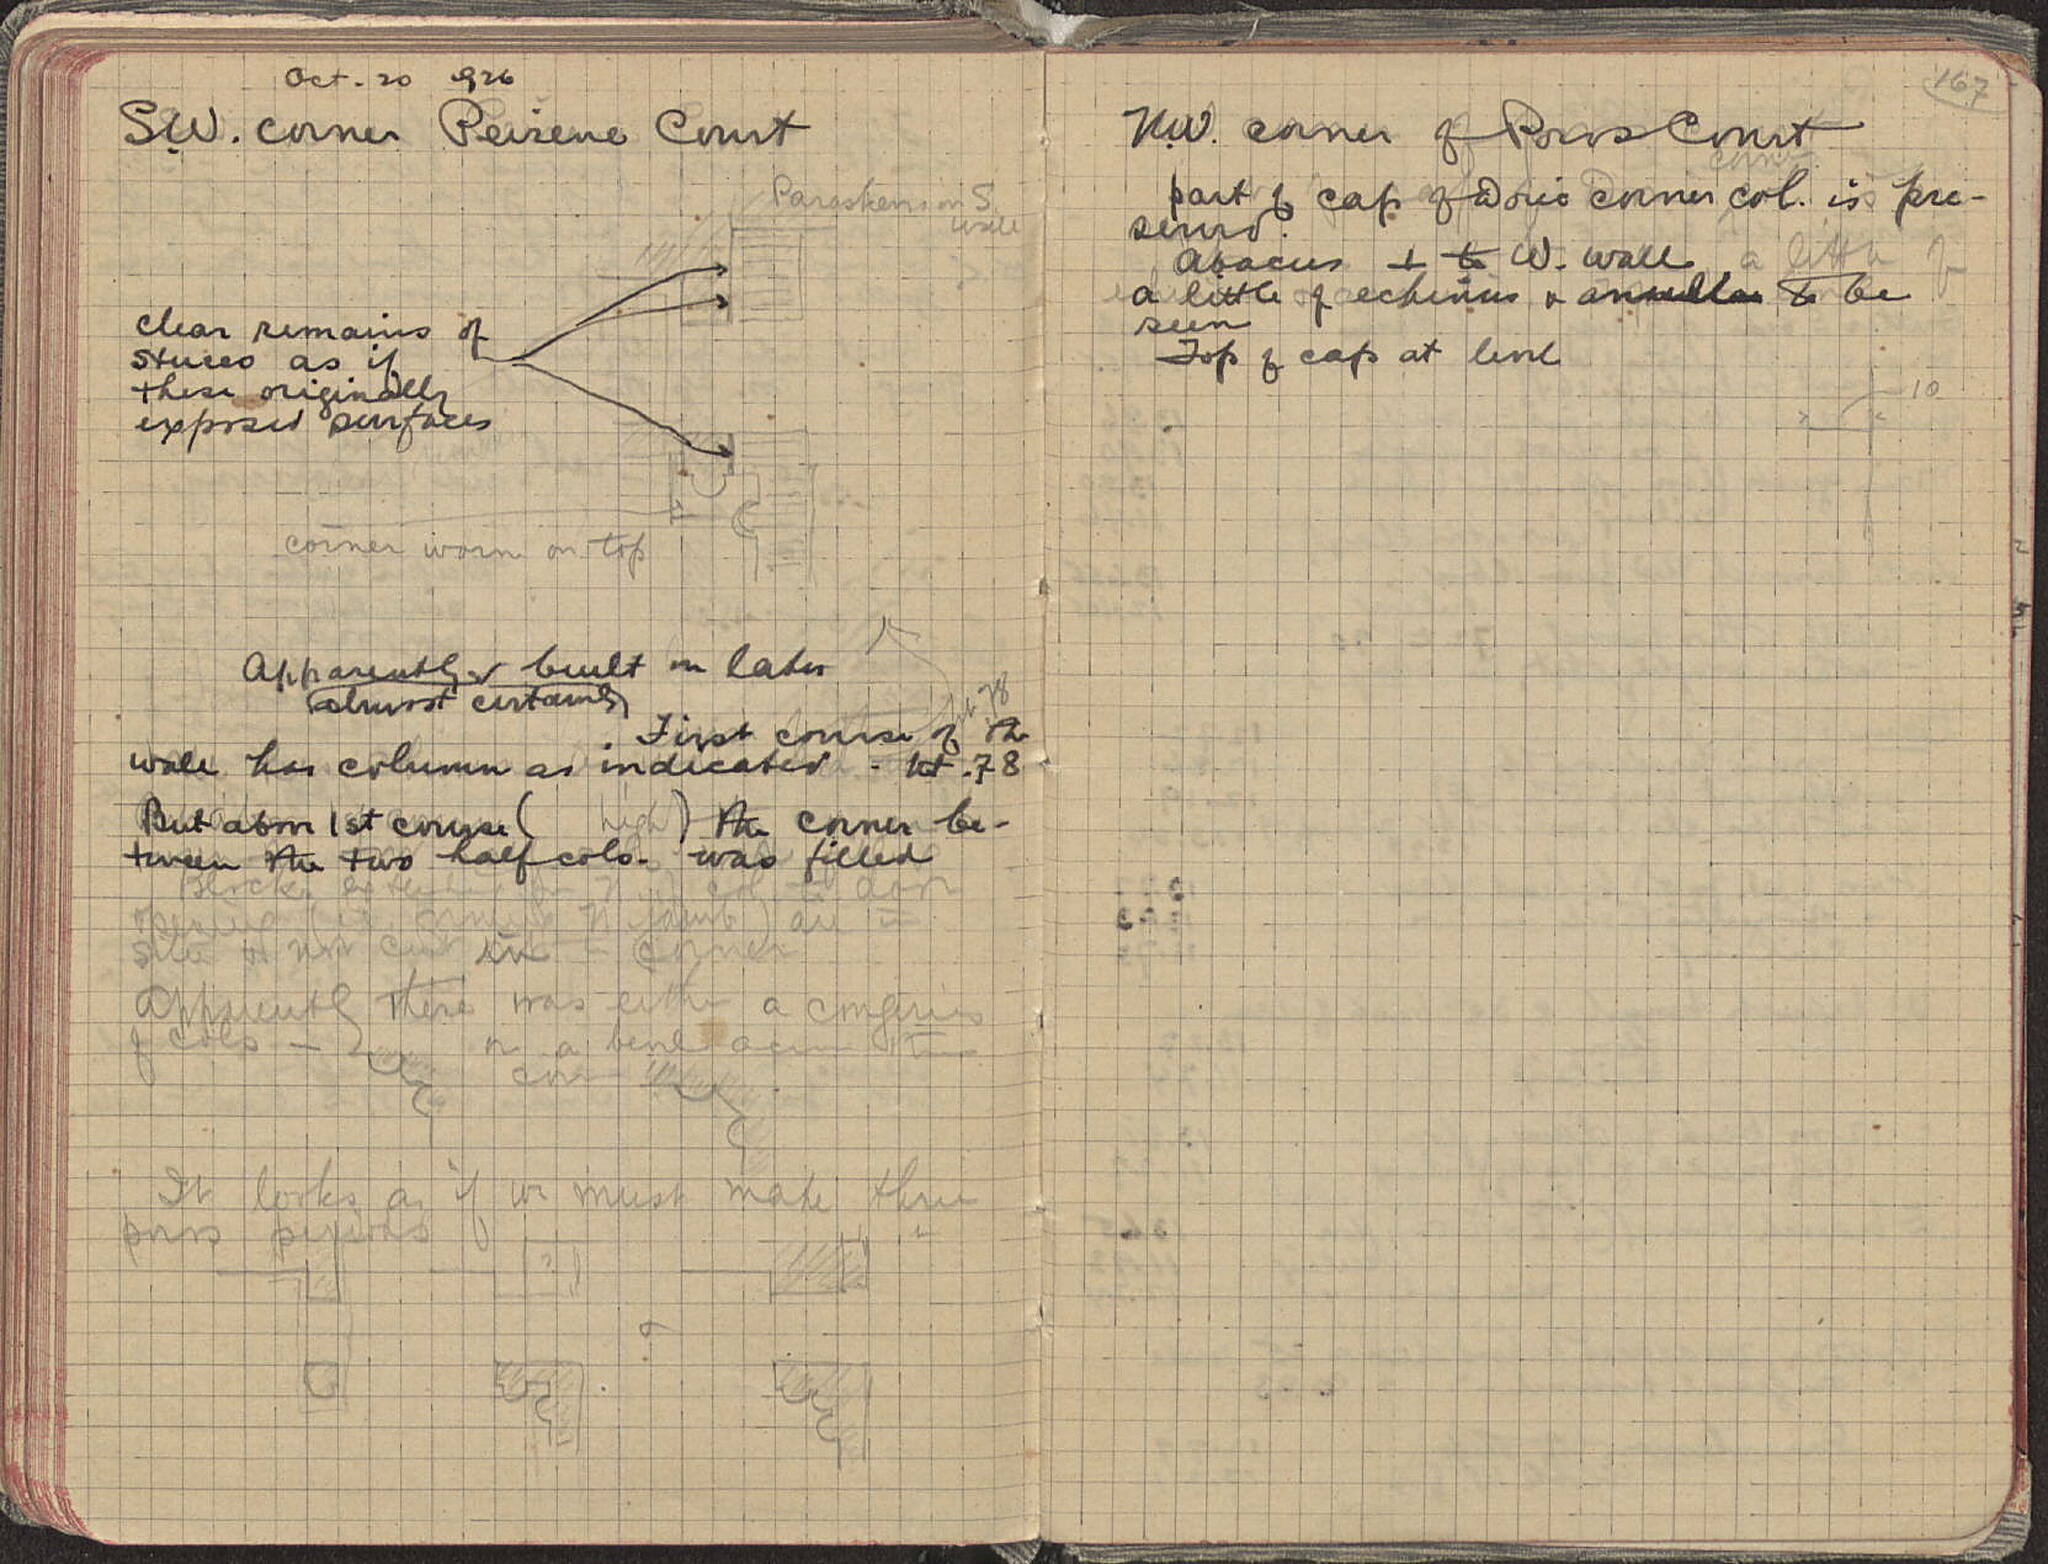 Oct. 20 926
S.W. corner Peirene Court
Paraskenion S.
wall
clear remains of
stucco as if
these originally
exposed surfaces
corner worn on top
Apparently built in later
almost certainly
ht. 78
. First course of the
wall has column as indicated . ht .78
But above 1st course ( high) the corner be-
tween the two half cols. was filled
Blocks N col. door
opening N jamb) are in
situ & not cut in corner
Apparently there was either a congeries
of cols — or a
It looks as if we must make three
poros periods
?
167
N.W. corner of Poros Court
corner
part of cap of Doric corner col. is pre-
served.
Abacus ⊥ to W. wall a little of
a little of echinus & annulae to be
seen
Top of cap at level
10